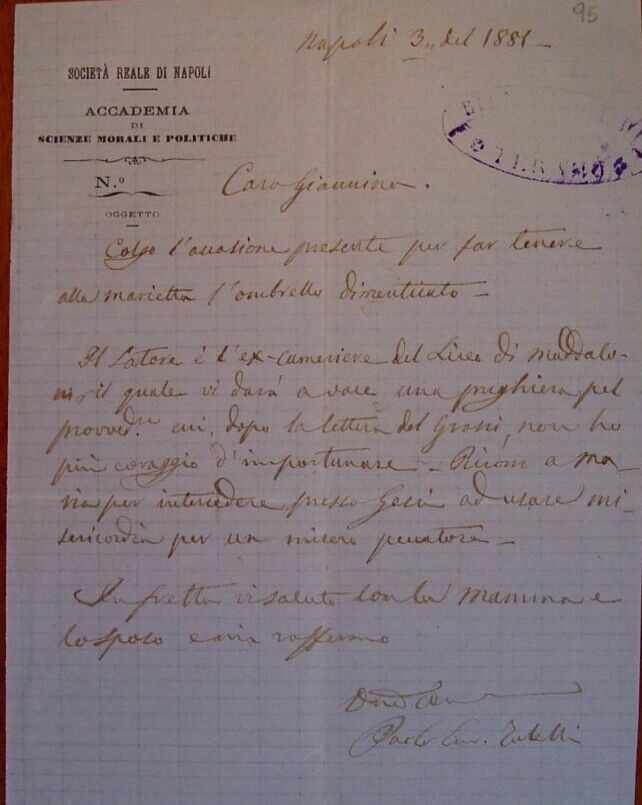 95
Napoli 3.. del 1881 -
SOCIETÀ REALE DI NAPOLI
ACCADEMIA
DI
SCIENZE MORALI E POLITICHE
N.º
OGGETTO
TERAMO
Caro Giannina.
Colgo l'occasione presente per far tenere
alla Marietta l'ombrello dimenticato -
Il Latore è l'ex-cameriere del Liceo di Maddalo-
ni, il quale vi darà a voce una preghiera pel
provved.re cui, dopo la lettera del Grossi, non ho
più coraggio d'importunare - Ricorro a Ma-
ria per intercedere presso Gesù ad usare mi-
sericordia per un misero peccatore -
In fretta vi saluto con la Mamma e
lo sposo e mi raffermo
Paolo Em. Tulelli